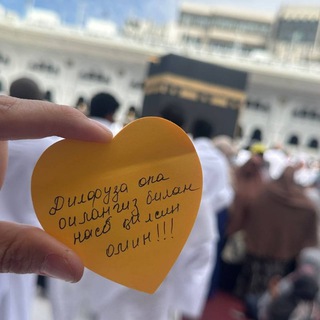 Дилфуза опа
оилангиз билан
насб қилсин
омин!!!